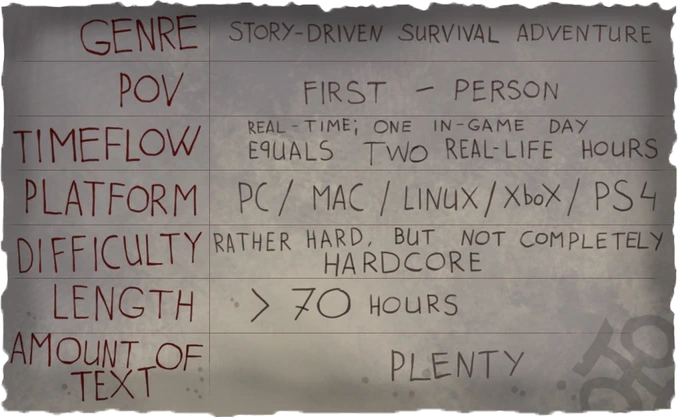 GENRE STORY-DRIVEN SURVIVAL ADVENTURE
POV FIRST - PERSON
TIMEFLOW REAL-TIME; ONE IN-GAME DAY
EQUALS TWO REAL-LIFE HOURS
PLATFORM PC / MAC / LINUX / XboX / PS4
DIFFICULTY RATHER HARD, BUT NOT COMPLETELY
HARDCORE
LENGTH > 70 HOURS
AMOUNT OF
TEXT PLENTY